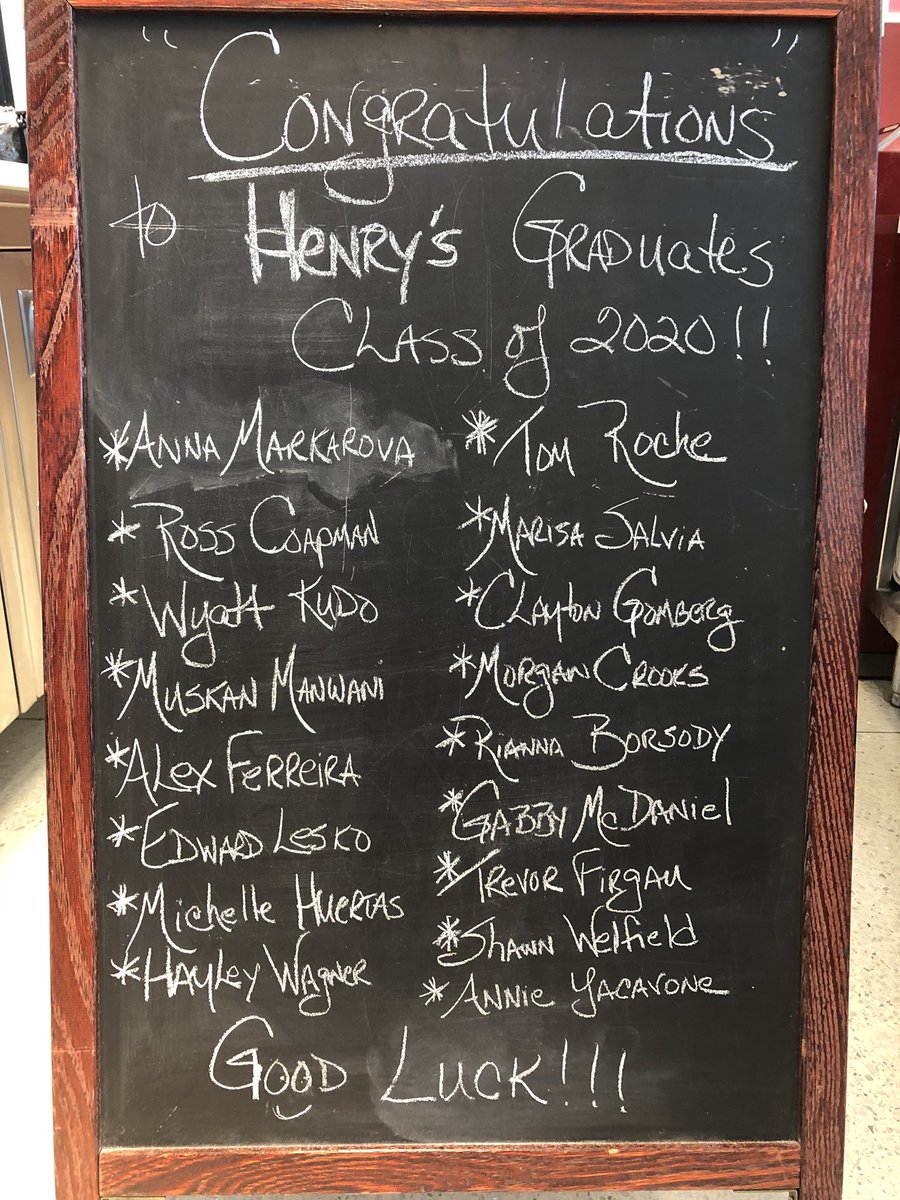 "Congratulations"
to Henry's Graduates
Class of 2020!!
*Anna Markarova
*Ross Coapman
*Wyatt Kudo
*Muskan Manwani
*Alex Ferreira
*Edward Lesko
*Michelle Huertas
*Hayley Wagner
*Tom Roche
*Marisa Salvia
*Clayton Gomberg
*Morgan Crooks
*Rianna Borsody
*Gabby McDaniel
*Trevor Firgau
*Shawn Welfield
*Annie Yacavone
Good Luck!!!